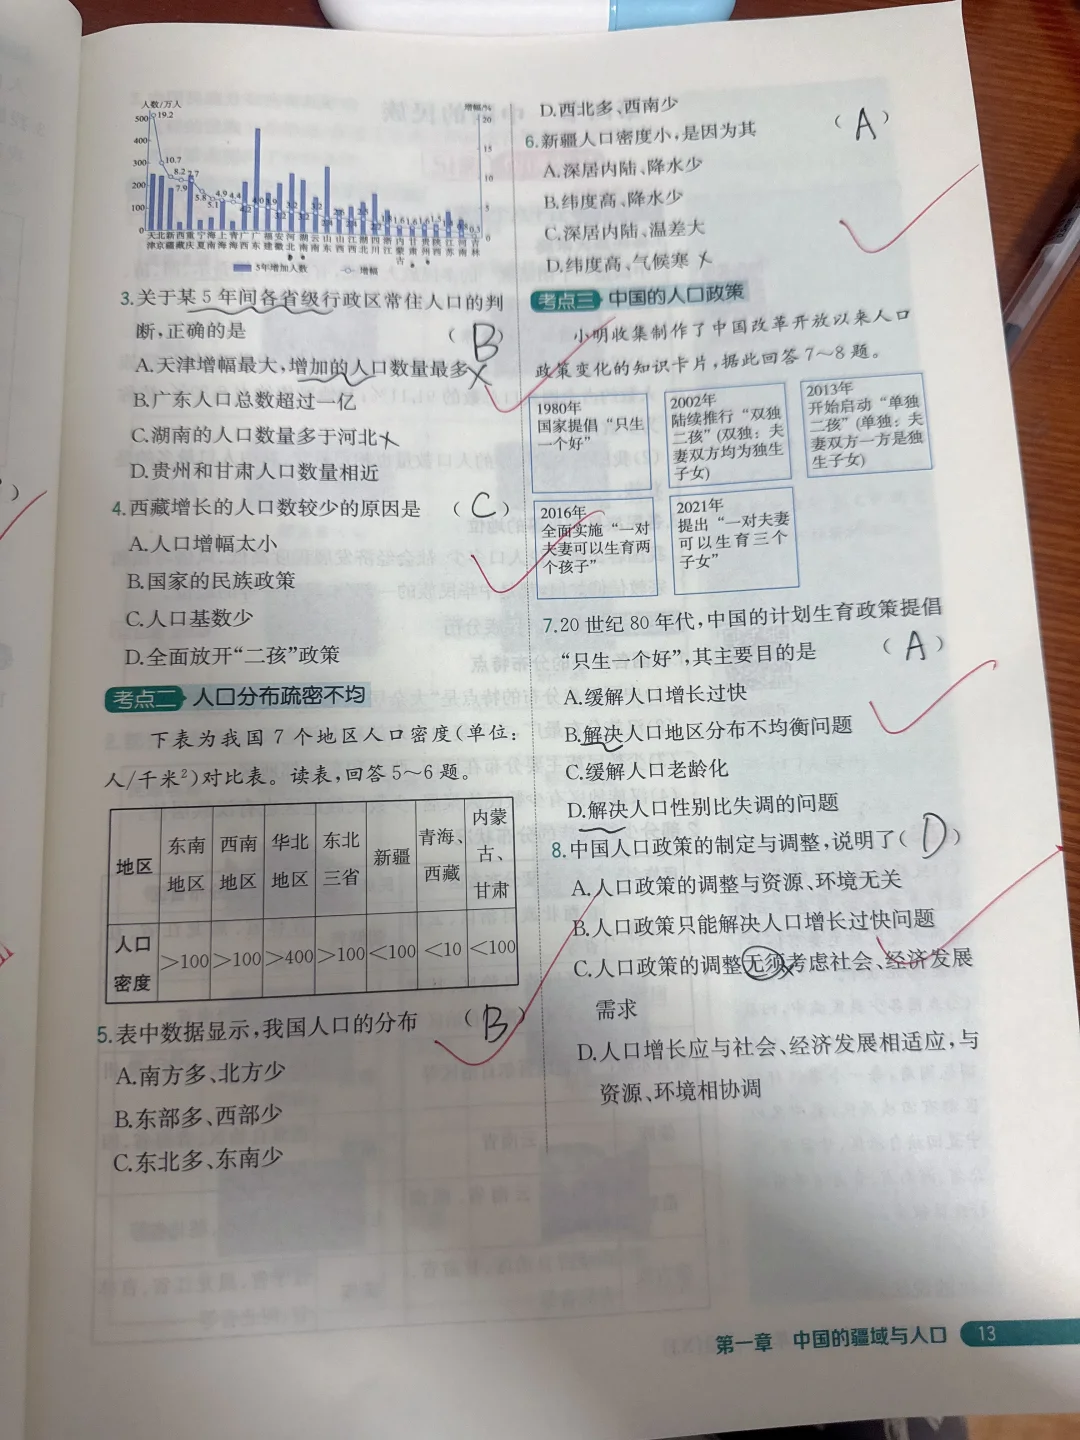 人数/万人
增幅/%
500
400
300
200
100
0
20
15
10
5
0
19.2
10.7
8.2
7.9
7.7
5.8
5.1
4.9
4.4
天北新西重宁海上青广广福安河湖云山山江湖四浙内甘贵陕江河吉
津京疆藏庆夏南海海西东建徽北南南东西西北川江蒙肃州西苏南林
古
5年增加人数 增幅
3.关于某5年间各省级行政区常住人口的判
断,正确的是 ( B )
A.天津增幅最大,增加的人口数量最多 ×
B.广东人口总数超过一亿
C.湖南的人口数量多于河北 ×
D.贵州和甘肃人口数量相近
4.西藏增长的人口数较少的原因是 ( C )
A.人口增幅太小
B.国家的民族政策
C.人口基数少
D.全面放开“二孩”政策
考点二 人口分布疏密不均
下表为我国7个地区人口密度(单位:
人/千米²)对比表。读表,回答5~6题。
地区 东南地区 西南地区 华北地区 东北三省 新疆 青海、西藏 内蒙古、甘肃
人口密度 >100 >100 >400 >100 <100 <10 <100
5.表中数据显示,我国人口的分布 ( B )
A.南方多、北方少
B.东部多、西部少
C.东北多、东南少
D.西北多、西南少
6.新疆人口密度小,是因为其 ( A )
A.深居内陆、降水少
B.纬度高、降水少
C.深居内陆、温差大
D.纬度高、气候寒 ×
考点三 中国的人口政策
小明收集制作了中国改革开放以来人口
政策变化的知识卡片,据此回答7~8题。
1980年
国家提倡“只生
一个好”
2002年
陆续推行“双独
二孩”(双独:夫
妻双方均为独生
子女)
2013年
开始启动“单独
二孩”(单独:夫
妻双方一方是独
生子女)
2016年
全面实施“一对
夫妻可以生育两
个孩子”
2021年
提出“一对夫妻
可以生育三个
子女”
7.20世纪80年代,中国的计划生育政策提倡
“只生一个好”,其主要目的是 ( A )
A.缓解人口增长过快
B.解决人口地区分布不均衡问题
C.缓解人口老龄化
D.解决人口性别比失调的问题
8.中国人口政策的制定与调整,说明了( D )
A.人口政策的调整与资源、环境无关
B.人口政策只能解决人口增长过快问题
C.人口政策的调整无须考虑社会、经济发展
需求
D.人口增长应与社会、经济发展相适应,与
资源、环境相协调
第一章 中国的疆域与人口 13